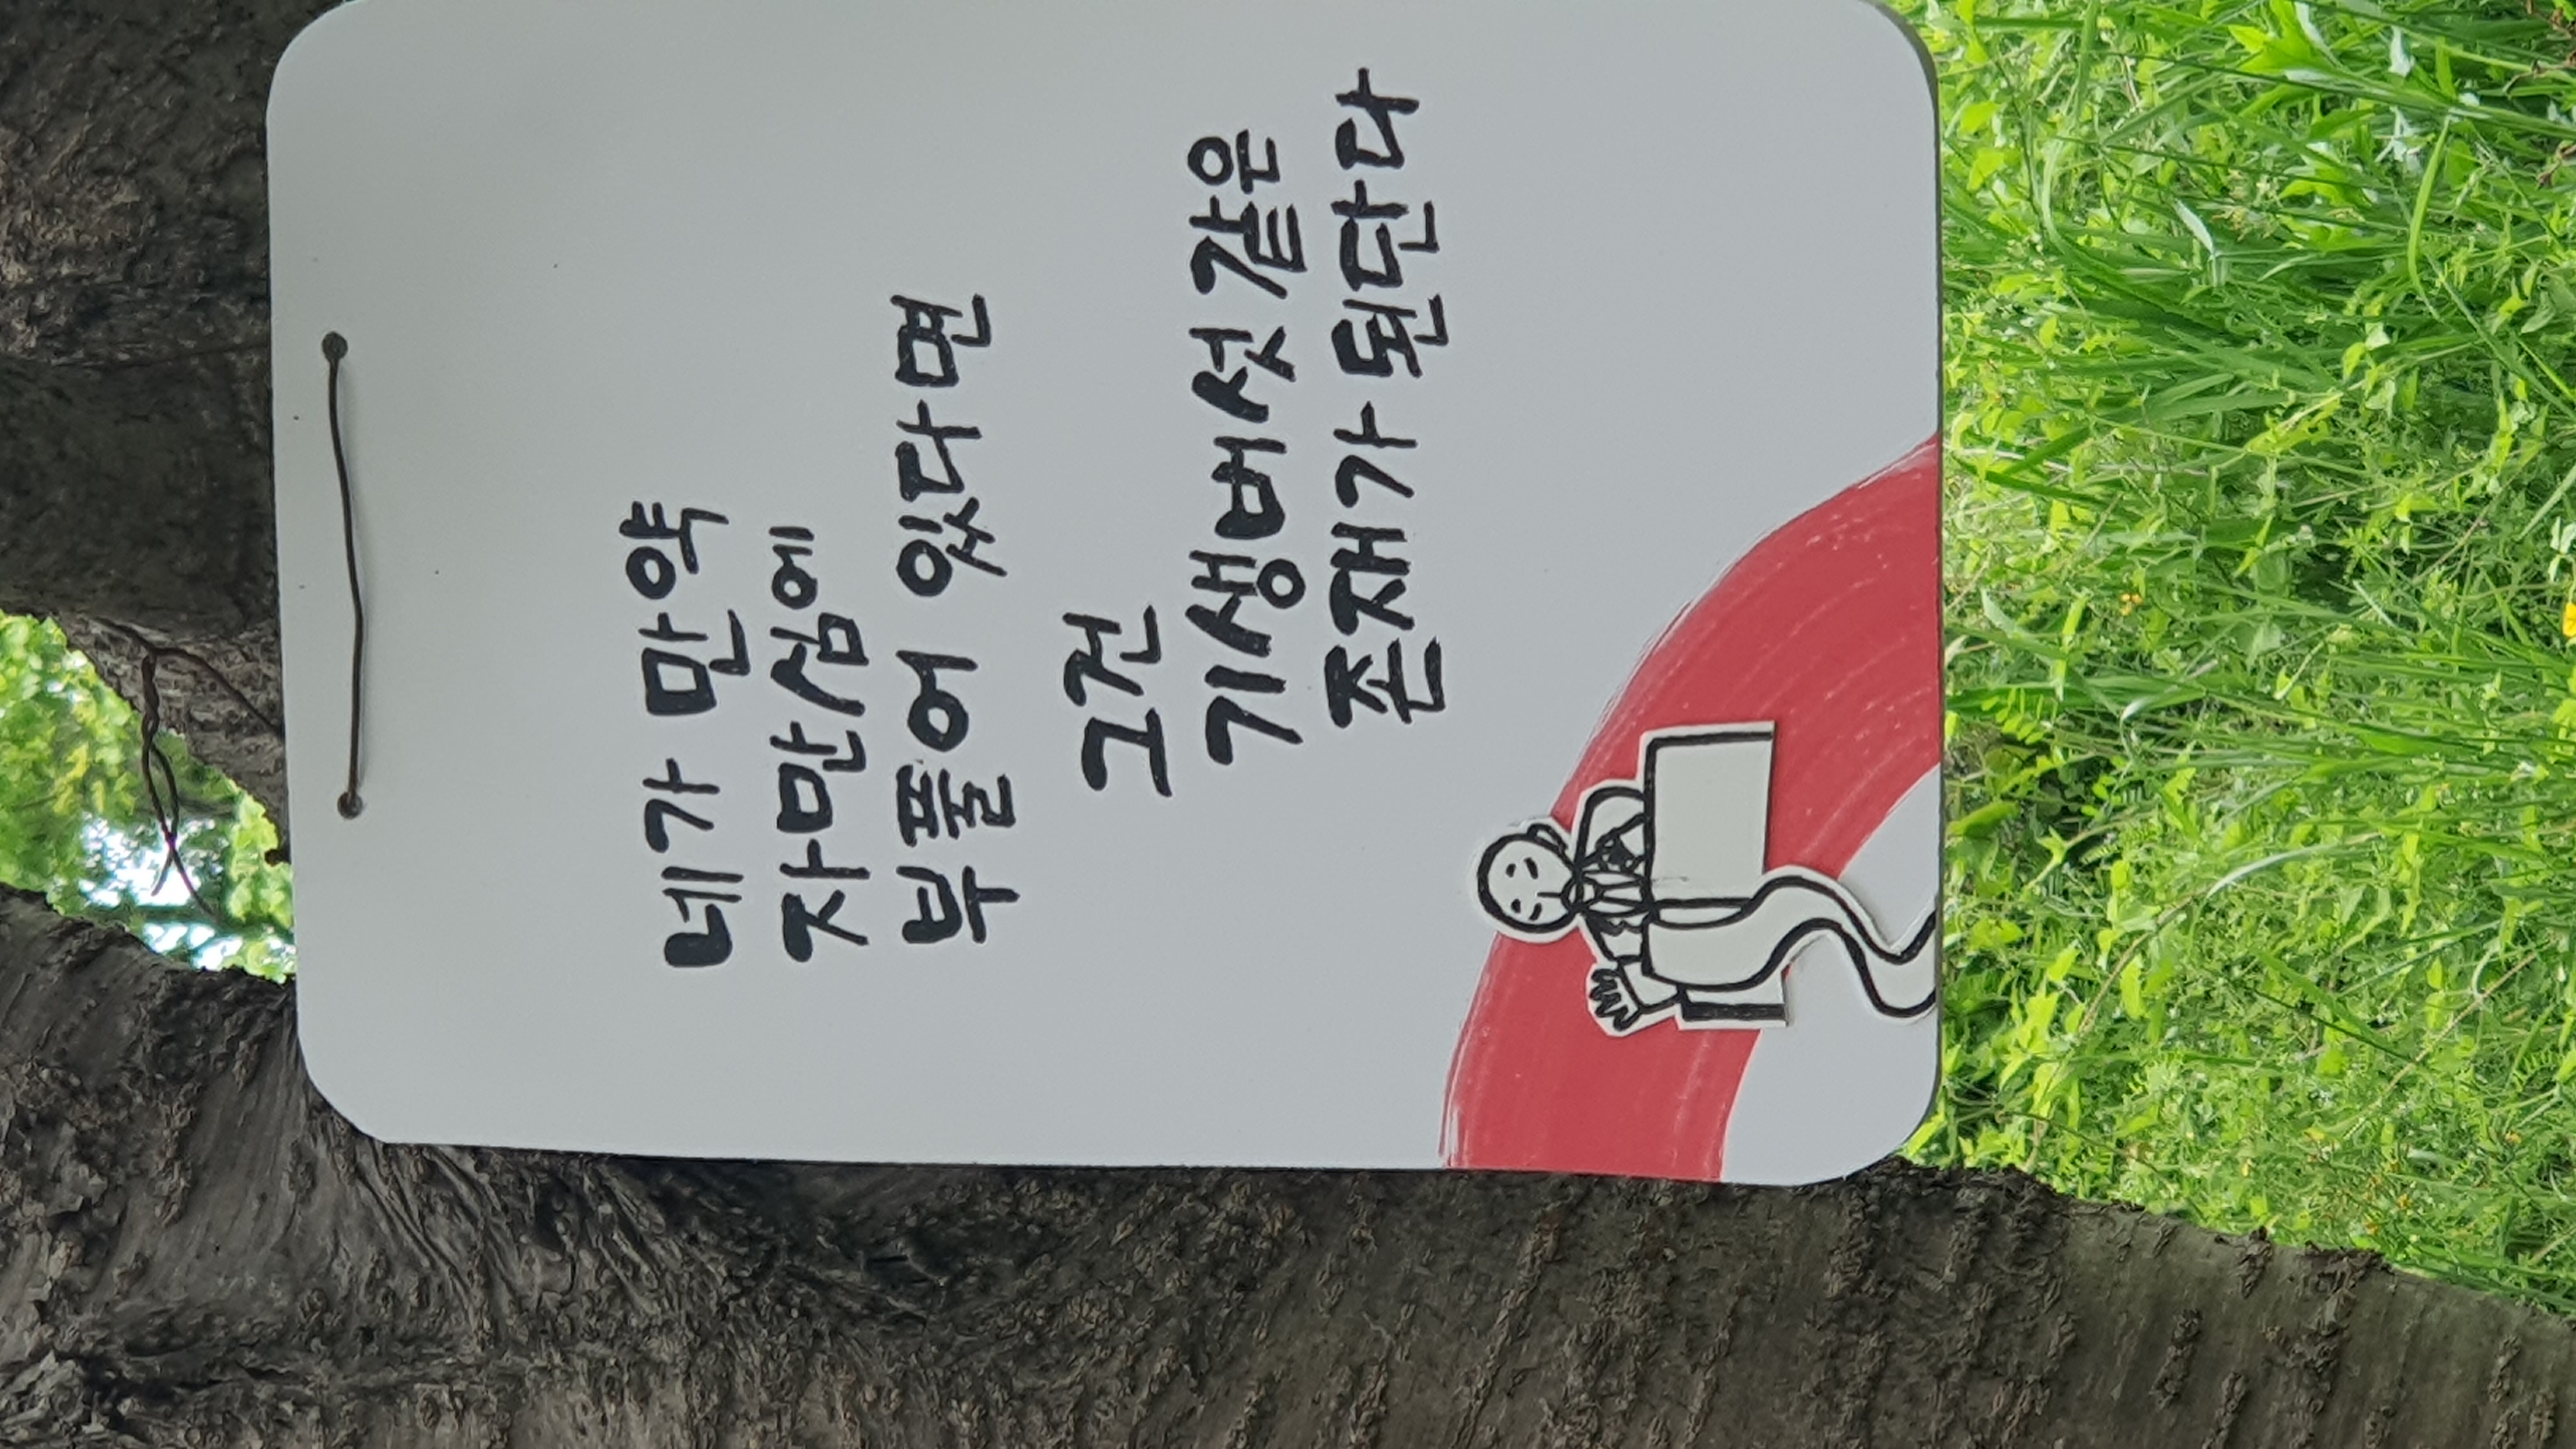 네가 만약
자만심에
부풀어 있다면
그건
기생버섯 같은
존재가 된단다